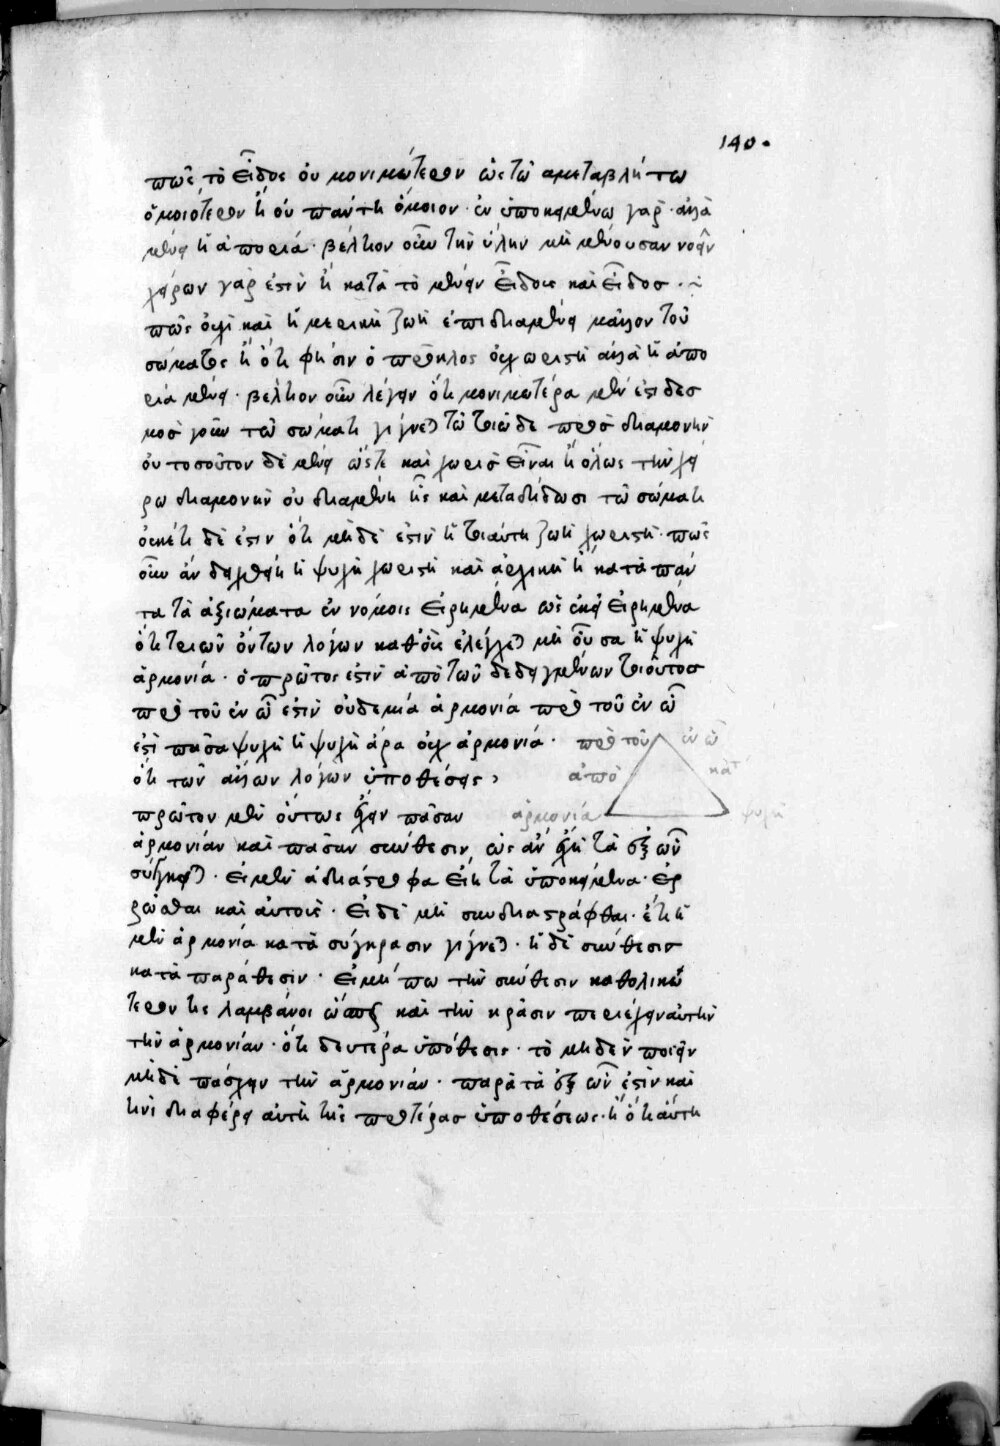 140.
πῶς τὸ εἶδος οὐ μονιμώτερον ὡς τῷ ἀμεταβλήτω
ὁμοιότερον ἢ οὐ πάντη ὅμοιον· ἐν ὑποκειμένω γάρ· ἀλλὰ
μένει ἡ ἀπορία· βέλτιον οὖν τὴν ὕλην μὴ μένουσαν νοεῖν
χεῖρων γάρ ἐστιν ἢ κατὰ τὸ μένειν εἶδος καὶ εἶδος·
πῶς οὐχὶ καὶ ἡ μερικὴ ζωὴ ἐπιδιαμένει μᾶλλον τοῦ
σώματος ἢ ὅτι φησιν ὁ πρόκλος οὐ χωριστὴ ἀλλὰ ἡ ἀπο
ρία μένει· βέλτιον οὖν λέγειν ὅτι μονιμωτέρα μέν ἐστι δεσ
μὸς γοῦν τῶ σώματι γίγνεται τῶ τοιῶδε πρὸς διαμονὴν
οὐ τοσοῦτον δὲ μένει ὥστε καὶ χωρὶς εἶναι ἢ ὅλως τὴν χεί
ρω διαμονὴν οὐ διαμένει ἧς καὶ μεταδίδωσι τῶ σώματι
οὐκέτι δέ ἐστιν ὅτι μηδέ ἐστιν ἡ τοιαύτη ζωὴ χωριστή· πῶς
οὖν ἂν δειχθείη ἡ ψυχὴ χωριστὴ καὶ ἀρχικὴ ἢ κατὰ πάν
τα τὰ ἀξιώματα ἐν νόμοις εἰρημένα ὡς ἐκεῖ εἰρημένα
ὅτι τριῶν ὄντων λόγων καθ᾽ οὓς ἐλέγχεται μὴ οὖσα ἡ ψυχὴ
ἁρμονία· ὁ πρῶτος ἐστὶν ἀπὸ τῶν δεδειγμένων τοιοῦτος
πρὸ τοῦ ἐν ᾧ ἐστὶν οὐδεμιά ἁρμονία πρὸ τοῦ ἐν ᾧ
ἐστὶ πᾶσα ψυχὴ ἡ ψυχὴ ἄρα οὐχ ἁρμονία· πρὸ τοῦ ἐν ᾧ
ὅτι τῶν ἄλλων λόγων ὑποθέσεις, ἀπὸ κατ
πρῶτον μὲν οὕτως ἔχειν πᾶσαν ἁρμονία ψυχὴ
ἁρμονίαν καὶ πᾶσαν σύνθεσιν, ὡς ἂν ἔχη τὰ ἐξ ὧν
σύγκειται· εἰ μὲν ἀδιάστροφα εἴη τὰ ὑποκείμενα· ἐρ
ρῶσθαι καὶ αὐτοῖς· εἰ δὲ μὴ συνδιαστράφθαι· ἔτι ἡ
μὲν ἁρμονία κατὰ σύγκρασιν γίγνεται· ἡ δὲ σύνθεσις
κατὰ παράθεσιν· εἰ μήπω τὴν σύνθεσιν καθολικώ
τερον τις λαμβάνοι ὥστε καὶ τὴν κρᾶσιν περιέχειν αὐτὴν
τὴν ἁρμονίαν· ὅτι δευτέρα ὑπόθεσις· τὸ μηδὲν ποιεῖν
μηδὲ πάσχειν τὴν ἁρμονίαν· παρὰ τὰ ἐξ ὧν ἐστὶν καὶ
τίνι διαφέρει αὐτὴ τῆς προτέρας ὑποθέσεως· ἢ ὅτι αὕτη